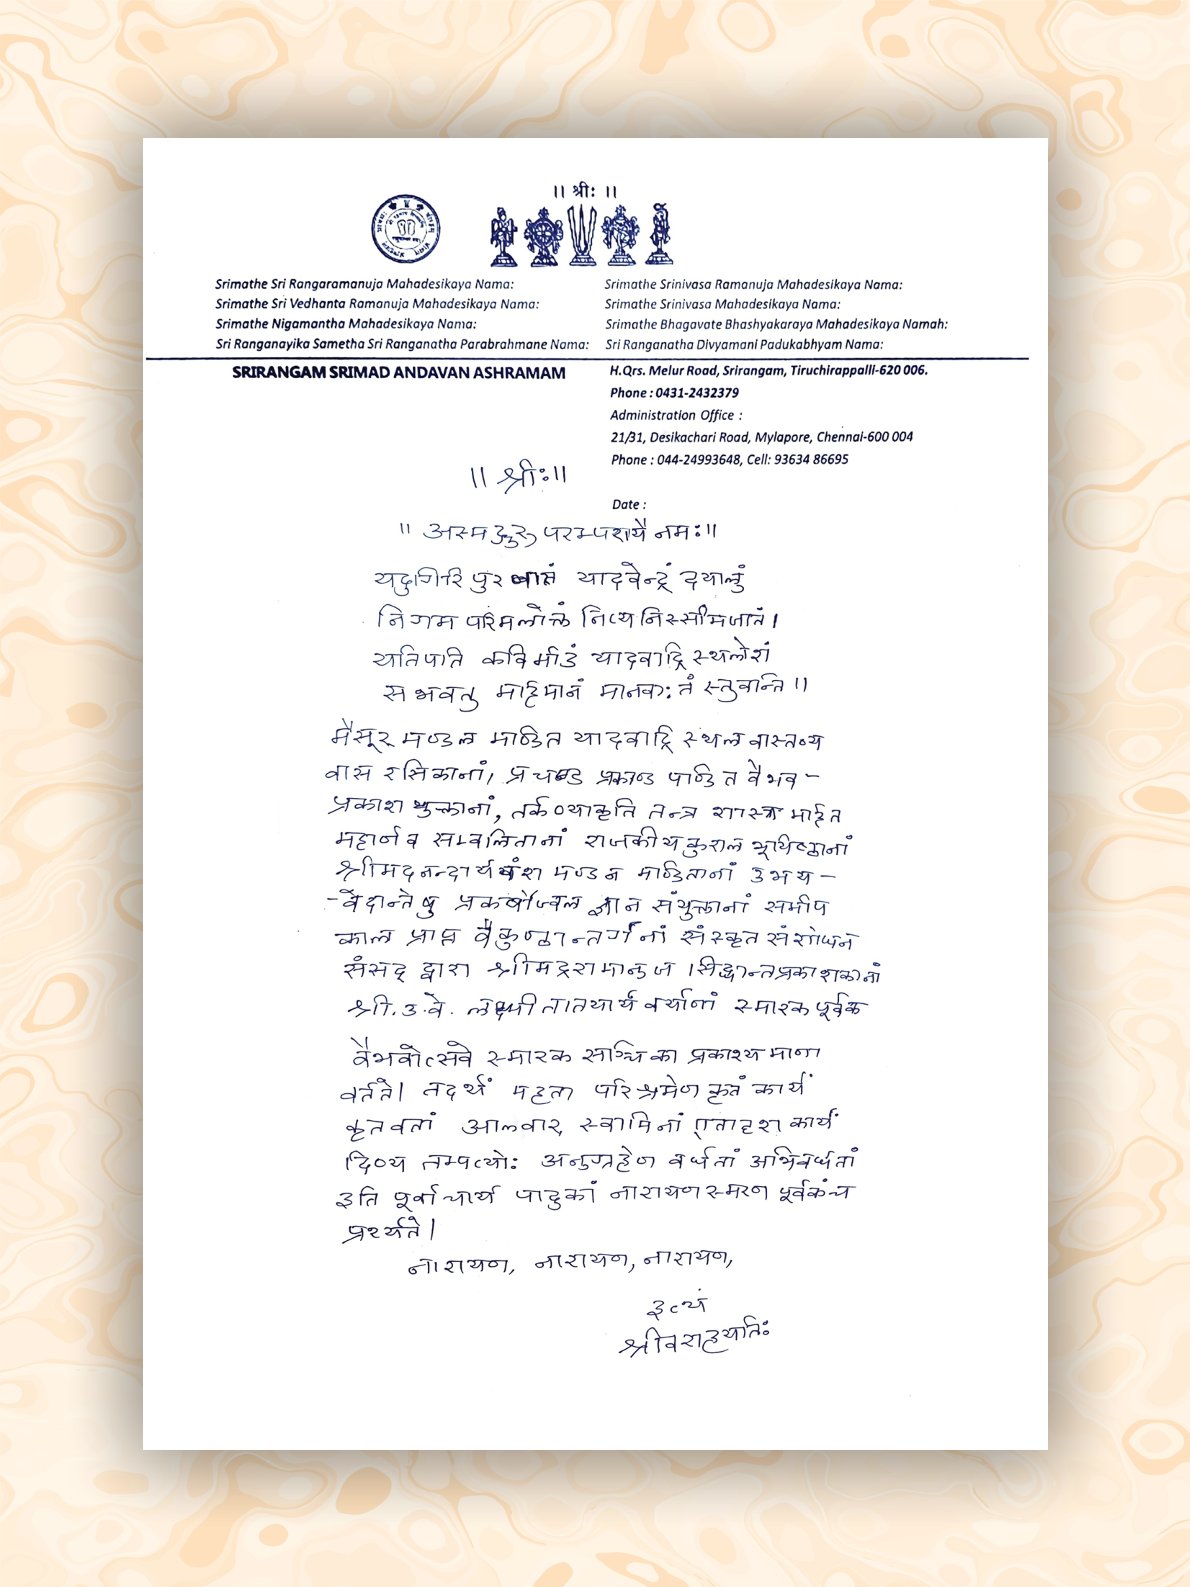 ॥ श्रीः ॥
Srimathe Sri Rangaramanuja Mahadesikaya Nama:
Srimathe Sri Vedhanta Ramanuja Mahadesikaya Nama:
Srimathe Nigamantha Mahadesikaya Nama:
Sri Ranganayika Sametha Sri Ranganatha Parabrahmane Nama:
Srimathe Srinivasa Ramanuja Mahadesikaya Nama:
Srimathe Srinivasa Mahadesikaya Nama:
Srimathe Bhagavate Bhashyakaraya Mahadesikaya Namah:
Sri Ranganatha Divyamani Padukabhyam Nama:
SRIRANGAM SRIMAD ANDAVAN ASHRAMAM
H.Qrs. Melur Road, Srirangam, Tiruchirappalli-620 006.
Phone : 0431-2432379
Administration Office :
21/31, Desikachari Road, Mylapore, Chennai-600 004
Phone : 044-24993648, Cell: 93634 86695
Date :
॥ श्रीः ॥
॥ अस्मद्गुरु परम्परायै नमः ॥
यदुगिरि पुर यादवेन्द्रं दयालुं
निगम नित्य निस्सीमजातं ।
यतिपति यादवाद्रि स्थलेशं
महिमानं स्तुवन्ति ॥
मैसूर मण्डल मण्डित यादवाद्रि स्थल वास्तव्य
वास रसिकानां, प्रचण्ड प्रकाण्ड पण्डित वैभव -
प्रकाश युक्तानां, तर्क व्याकृति तन्त्र शास्त्र महित
महार्णव सम्वलितानां राजकीय कुशल भूयिष्ठानां
श्रीमदनन्दार्य वंश मण्डन मण्डितानां उभय -
- वेदान्तेषु प्रकर्षोज्वल ज्ञान संयुक्तानां समीप
काल प्राप्त वैकुण्ठान्तर्गतानां संस्कृत संशोधन
संसद् द्वारा श्रीमद्रामानुज सिद्धान्तप्रकाशकानां
श्री.उ.वे. लक्ष्मीतातयार्य वर्याणां स्मारक पूर्वक
वैभवोत्सवे स्मारक सञ्चिका प्रकाश्यमाना
वर्तते। तदर्थं महता परिश्रमेण कृतं कार्यं
कृतवतां आलवार् स्वामिनां एतादृश कार्यं
दिव्य दम्पत्योः अनुग्रहेण वर्धतां अभिवर्धतां
इति पूर्वाचार्य पादुकां नारायण स्मरण पूर्वकं च
प्रार्थ्यते।
नारायण, नारायण, नारायण,
इत्थं
श्रीवराहयतिः